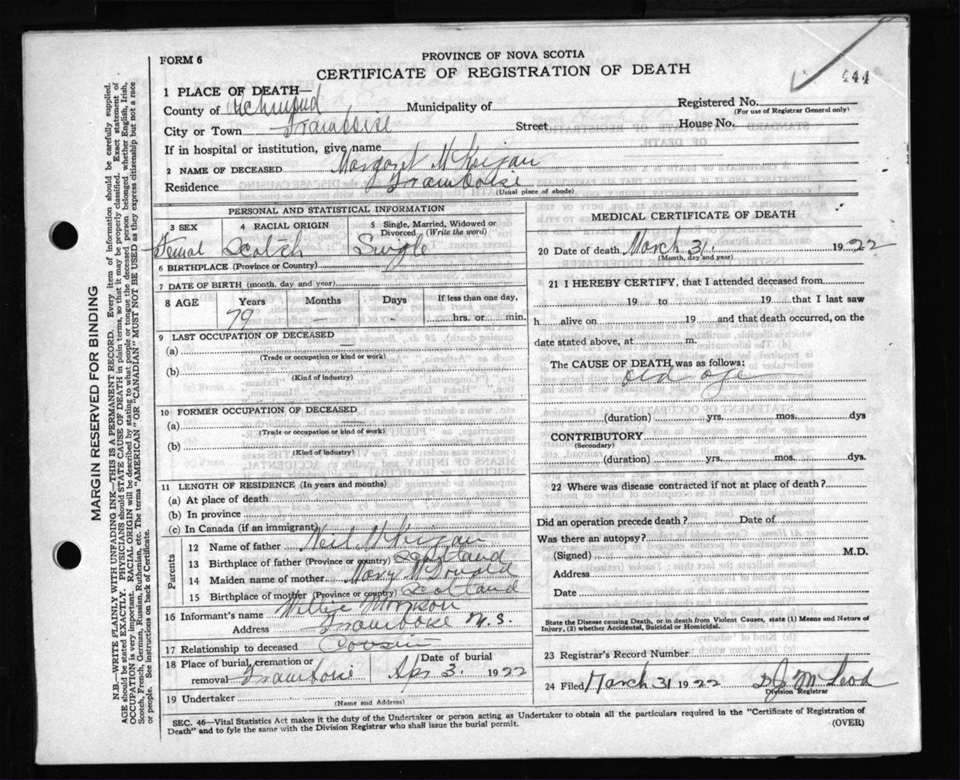 FORM 6
PROVINCE OF NOVA SCOTIA
CERTIFICATE OF REGISTRATION OF DEATH
444
1 PLACE OF DEATH—
County of Richmond Municipality of Registered No.
(For use of Registrar General only)
City or Town Framboise Street House No.
If in hospital or institution, give name
2 NAME OF DECEASED Margaret McKeigan
Residence Framboise
(Usual place of abode)
PERSONAL AND STATISTICAL INFORMATION
3 SEX 4 RACIAL ORIGIN 5 Single, Married, Widowed or Divorced (Write the word)
Femal Scotch Single
6 BIRTHPLACE (Province or Country)
7 DATE OF BIRTH (month, day and year)
8 AGE Years Months Days If less than one day,
79 hrs. or min.
9 LAST OCCUPATION OF DECEASED
(a)
(Trade or occupation or kind or work)
(b)
(Kind of industry)
10 FORMER OCCUPATION OF DECEASED
(a)
(Trade or occupation or kind of work)
(b)
(Kind of industry)
11 LENGTH OF RESIDENCE (In years and months)
(a) At place of death
(b) In province
(c) In Canada (if an immigrant)
Parents
12 Name of father Neil McKeigan
13 Birthplace of father (Province or country) Scotland
14 Maiden name of mother Mary McDonald
15 Birthplace of mother (Province or country) Scotland
16 Informant's name Willie Morrison
Address Framboise N.S.
17 Relationship to deceased Cousin
18 Place of burial, cremation or Date of burial
removal Framboise Apr 3. 1922
19 Undertaker
(Name and Address)
MEDICAL CERTIFICATE OF DEATH
20 Date of death March 31. 1922
(Month, day and year)
21 I HEREBY CERTIFY, that I attended deceased from
19 to 19 that I last saw
h alive on 19 and that death occurred, on the
date stated above, at m.
The CAUSE OF DEATH was as follows:
Old age
(duration) yrs. mos. dys
CONTRIBUTORY
(Secondary)
(duration) yrs. mos. dys.
22 Where was disease contracted if not at place of death?
Did an operation precede death? Date of
Was there an autopsy?
(Signed) M.D.
Address
Date
State the Disease causing Death, or in death from Violent Causes, state (1) Means and Nature of
Injury, (2) whether Accidental, Suicidal or Homicidal.
23 Registrar's Record Number
24 Filed March 31 1922 D J McLeod
Division Registrar
SEC. 46—Vital Statistics Act makes it the duty of the Undertaker or person acting as Undertaker to obtain all the particulars required in the "Certificate of Registration of
Death" and to fyle the same with the Division Registrar who shall issue the burial permit.
(OVER)
MARGIN RESERVED FOR BINDING
N.B.—WRITE PLAINLY WITH UNFADING INK—THIS IS A PERMANENT RECORD. Every item of information should be carefully supplied.
AGE should be stated EXACTLY. PHYSICIANS should STATE CAUSE OF DEATH in plain terms, so that it may be properly classified. Exact statement of
OCCUPATION is very important. RACIAL ORIGIN will be described by stating to what people or tongue the deceased person belonged, whether English, Irish,
Scotch, French, German, Russian, Ruthenian, etc. The terms "AMERICAN" OR "CANADIAN" MUST NOT BE USED as they express citizenship but not a race
or people. See instructions on back of Certificate.